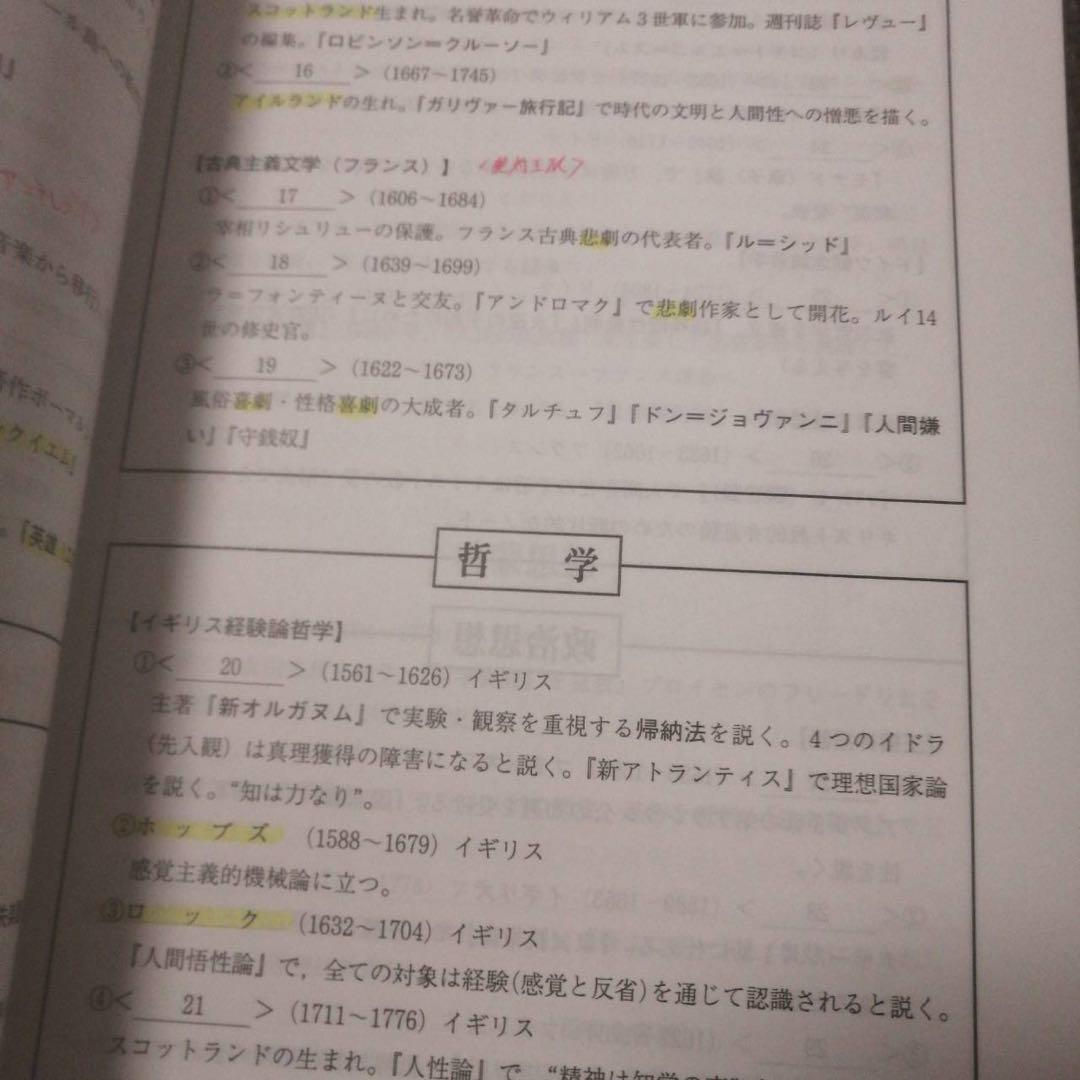 スコットランド生まれ。名誉革命でウィリアム3世軍に参加。週刊誌『レヴュー』
の編集。『ロビンソン＝クルーソー』
②< 16 >(1667〜1745)
アイルランドの生れ。『ガリヴァー旅行記』で時代の文明と人間性への憎悪を描く。
【古典主義文学（フランス）】
①< 17 >(1606〜1684)
宰相リシュリューの保護。フランス古典悲劇の代表者。『ル＝シッド』
②< 18 >(1639〜1699)
ラ＝フォンティーヌと交友。『アンドロマク』で悲劇作家として開花。ルイ14
世の修史官。
③< 19 >(1622〜1673)
風俗喜劇・性格喜劇の大成者。『タルチュフ』『ドン＝ジョヴァンニ』『人間嫌
い』『守銭奴』
哲 学
【イギリス経験論哲学】
①< 20 >(1561〜1626) イギリス
主著『新オルガヌム』で実験・観察を重視する帰納法を説く。4つのイドラ
（先入観）は真理獲得の障害になると説く。『新アトランティス』で理想国家論
を説く。“知は力なり”。
②ホッブズ (1588〜1679) イギリス
感覚主義的機械論に立つ。
③ロック (1632〜1704) イギリス
『人間悟性論』で，全ての対象は経験(感覚と反省)を通じて認識されると説く。
④< 21 >(1711〜1776) イギリス
スコットランドの生まれ。『人性論』で，“精神は知覚の束”
音楽から移行